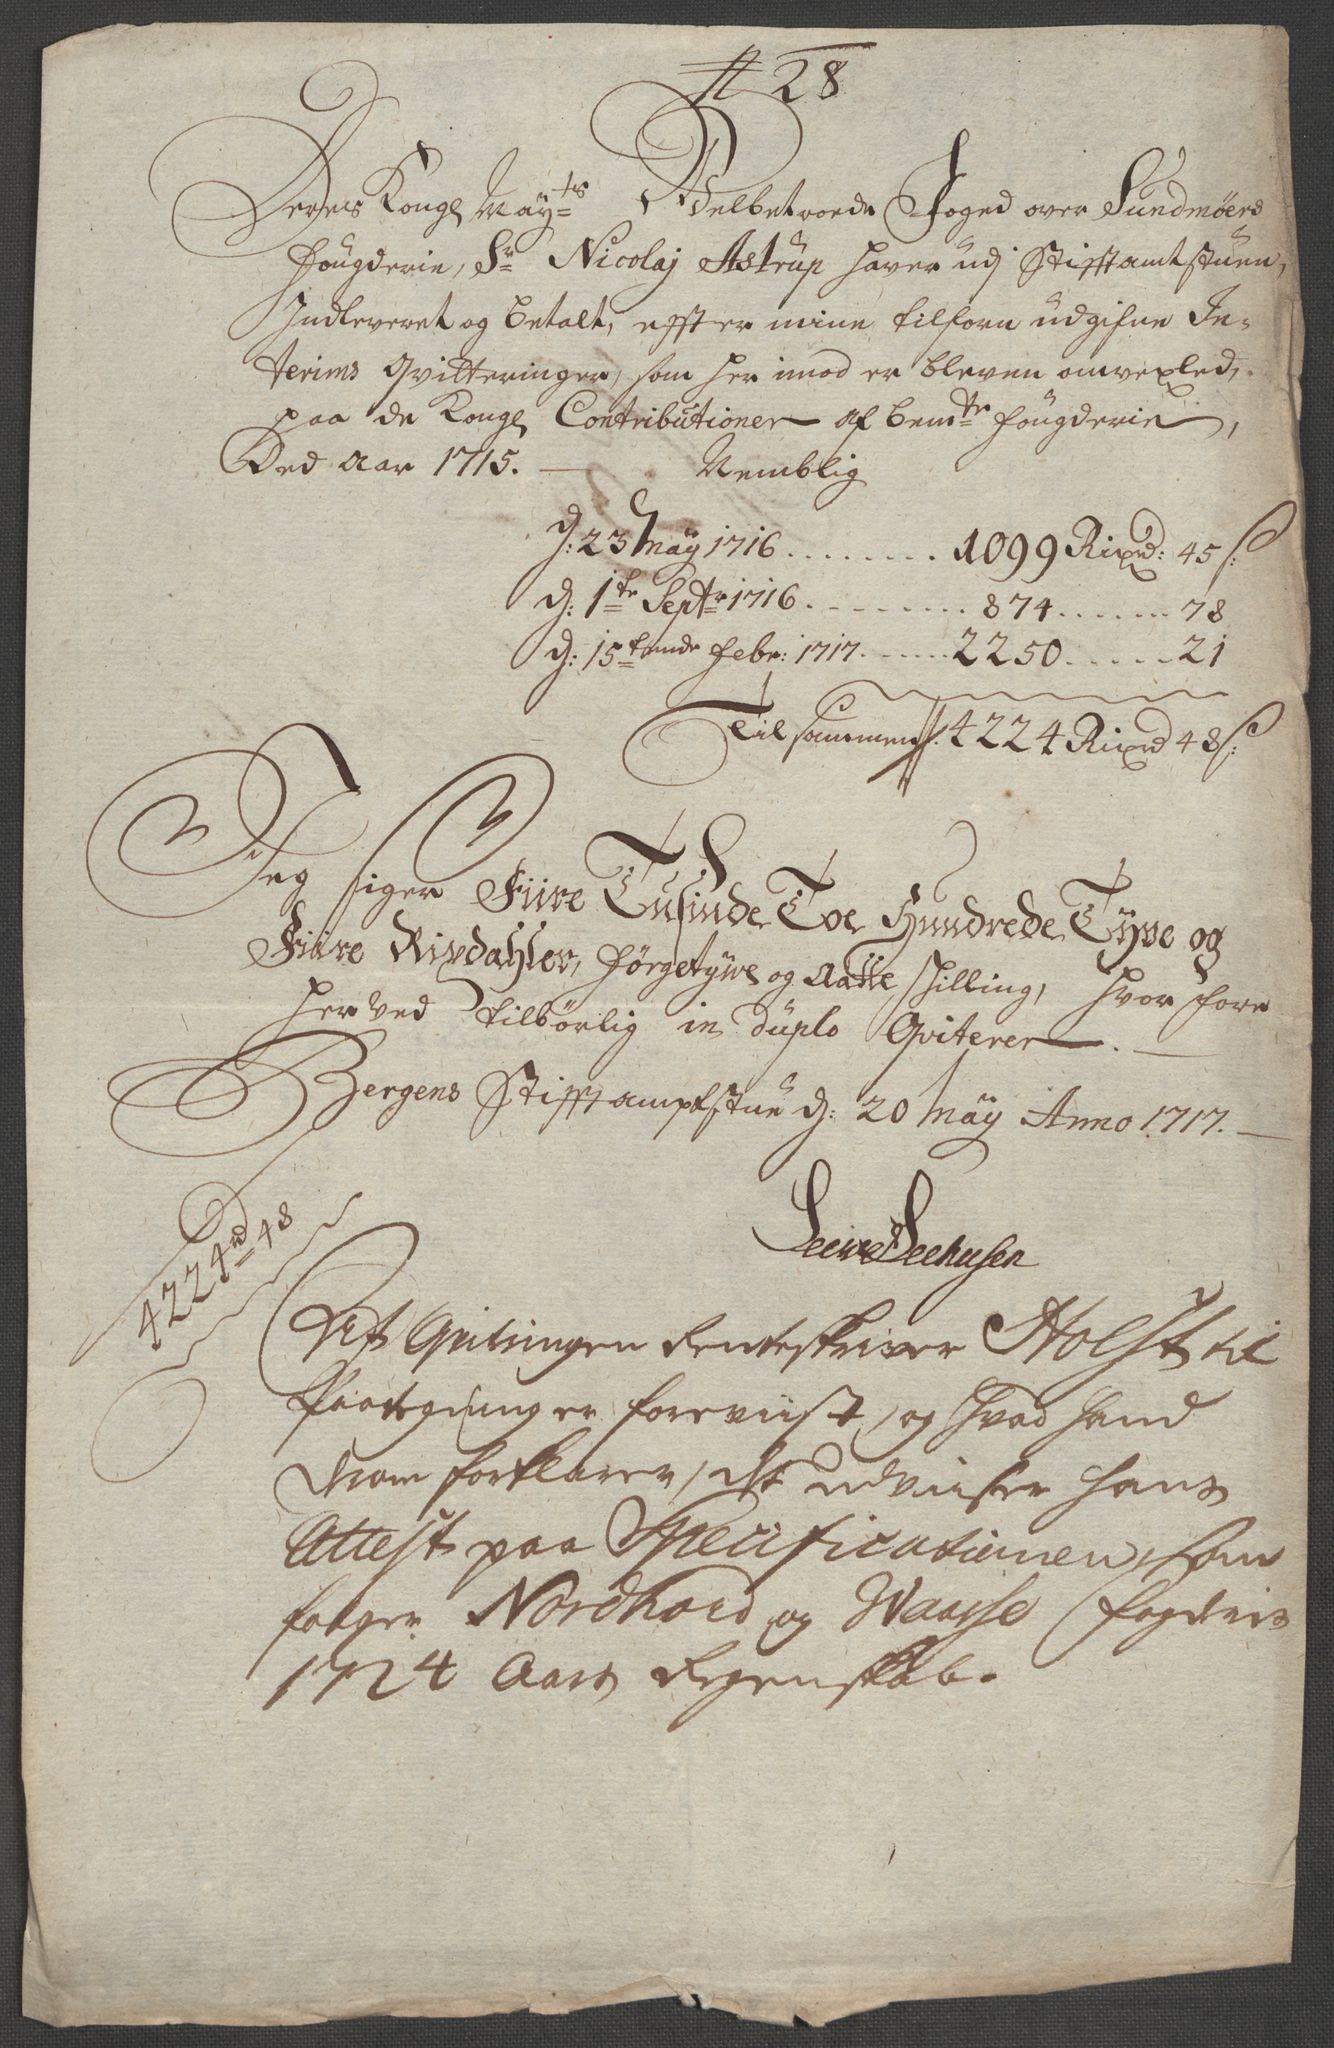 N 28
Deres Kongl Mayts Velbetroede Foged over Sundmøers
Fougderie, Sr Nicolaj Astrup haver udj Stifftamtstuen,
Indleveret og betalt, effter mine tilforn udgifne In-
terims Qvitteringer, som her imod er bleven omvexled,
paa de Kongl Contributioner af bemte Fougderie,
Ved Aar 1715. Nemblig
d: 23 May 1716 ........ 1099 Rixd: 45 s:
d: 1te Septr 1716 ......... 874 ....... 78
d: 15tende Febr: 1717 ...... 2250 ...... 21
Tilsammen 4224 Rixd 48 s:
Jeg siger Fiire Tusinde Toe Hundrede Tyve og
Fiire Rixdahler, førgetywe og Aatte skilling, hvor fore
her ved tilbørlig in duplo Qviterer.
Bergens Stifftamptstue d: 20 May Anno 1717.
4224 rd 48
Seehusen
Qvitringen Renteskriver Holst til
er foreviist, og hvad hand
forklarer, det udviiser hans
Attest paa Specificationen, som
følger Nordhord og Waasse Fogderies
1724 Aars Regenskab.